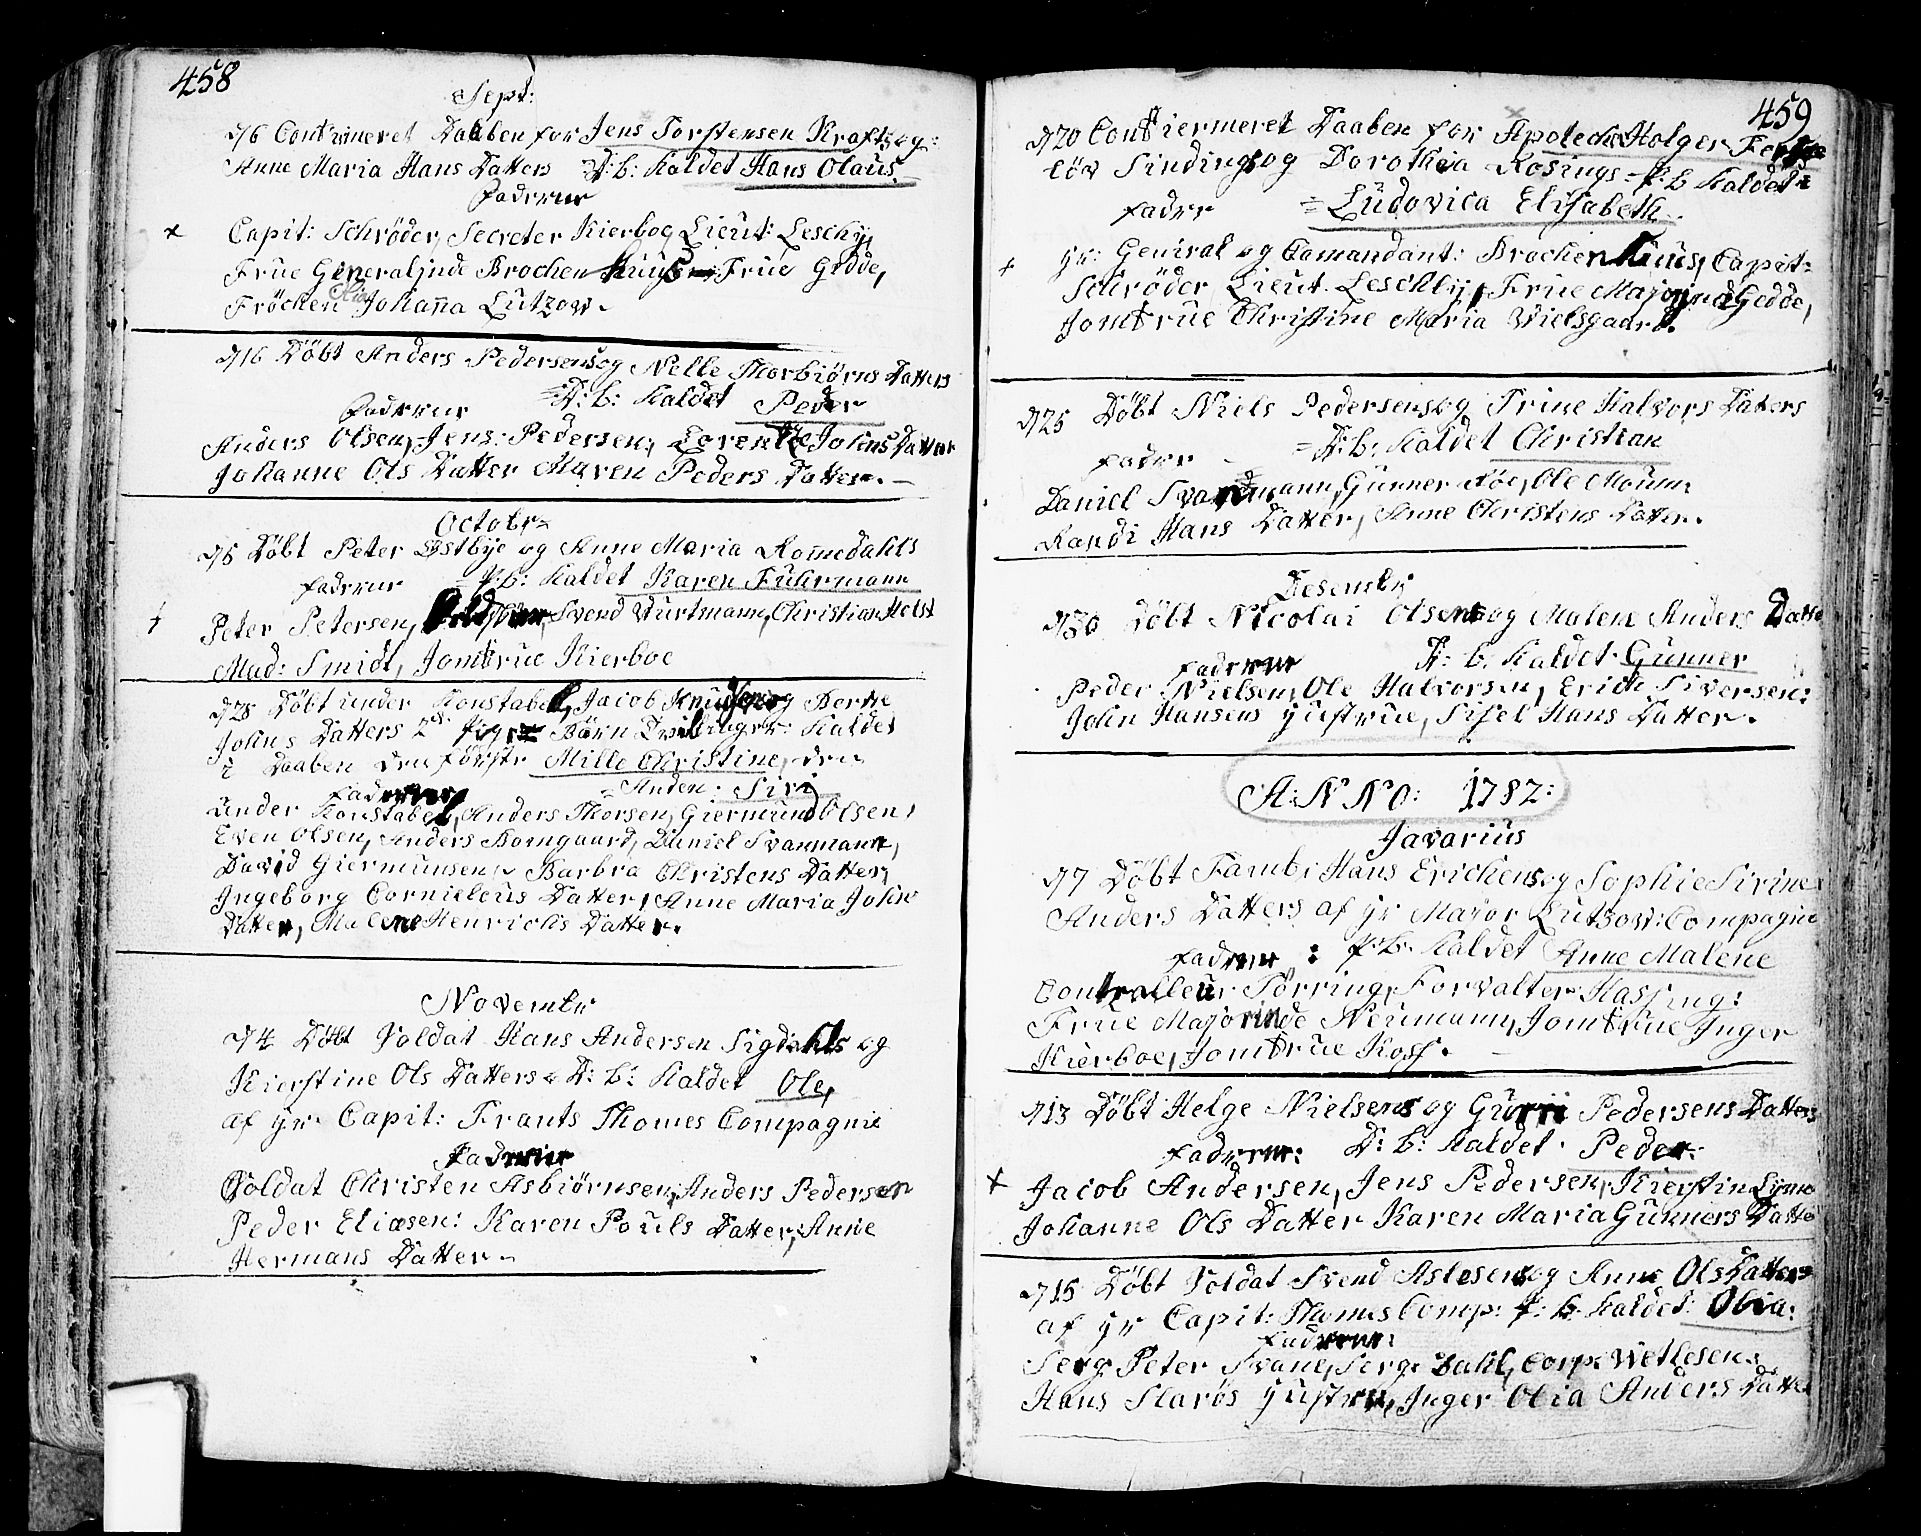 458
Sept:
d/6 Confirmeret Daaben for Jens Torstensen Krafts og:
Anne Maria Hans Datters D: b: Kaldet Hans Olaus.
Faderne
× Capit: Schrøder, Secreter Kierboe, Lieut: Leschly,
Frue Generalinde Brochenhuus, Frue Gedde,
Frøchen Johanna Lutzow.
d/16 Døbt Anders Pedersens og Nelle Thorbiørns Datters
D: b: Kaldet Peder
Fadrene
Anders Olsen, Jens Pedersen, Lorentze Johns Datter
Johanne Ols Datter Maren Peders Datter.
Octobr
d/5 Døbt Peter Østbye og Anne Maria Romedahls
P: b: Kaldet Karen Fuhrmann
Fadrene
Peter Petersen, Svend Wurtmann, Christian Holst
Mad: Smidt, Jomfrue Kierboe
d/28 Døbt under Konstabel, Jacob Knudsens og Berthe
Johns Datters 2de Pige Børn Tvillinger: Kaldet
i Daaben den første Mille Christine, den
Anden: Siri
Fadrene
under Konstabel, Anders Thorsen, Giermund Olsen,
Even Olsen, Anders Bomgaard, Daniel Svanmann,
David Giermunsen, Barbra Christens Datter,
Ingeborg Cornieleus Datter, Anne Maria John
Datter, Malene Henrichs Datter.
Novembr
d/4 Døbt Soldat Hans Andersen Sigdahls og
Kierstine Ols Datters D: b: Kaldet Ole,
af hr Capit: Frants Thomes Compagnie
Fadrene
Soldat Christen Asbiørnsen, Anders Pedersen
Peder Eliæsen: Karen Pouls Datter, Anne
Hermans Datter
459
d/20 Confiermeret Daaben for Apoteche Holger
Sindings og Dorothea Rosings P: b Kaldet
Ludovica Elisabeth
Fadre
hr: General og Comandant: Brochenhuus, Capit:
Schrøder Lieut. Leschly, Frue Majorinde Gedde,
Jomfrue Christine Maria Wielsgaard.
d/25 Døbt Niels Pedersens og Trine Halvors Datters
D: b: Kaldet Christian
Fadre
Daniel Svandmann, Gunner Røe, Ole Moum
Randi Hans Datter, Anne Christens Datter.
Desembr
d/30 Døbt Nicolai Olsens og Malene Anders Datte
D: b. Kaldet Gunner
Fadrene
Peder Nielsen, Ole Halvorsen, Erich Siversen:
John Hansens hustrue, Sisel Hans Datter.
A:NNO: 1782:
Javarius
d/7 Døbt Tambr Hans Erichens og Sophie Sirine
Anders Datters af hr Major Lutzow: Compagnie
P: b. Kaldet Anne Malene
Fadrene
Contralleur Tørring, Forvalter Hassing:
Frue Majorinde Neumann, Jomfrue Inger
Kierboe, Jomfrue Koss.
d/13 Døbt Helge Nielsens og Gurri Pedersens Datters
D: b: Kaldet Peder
Fadrene:
× Jacob Andersen, Jens Pedersen, Kierstin Lynn
Johanne Ols Datter Karen Maria Gunners Datte
d/15 Døbt Soldat Svend Aslesens og Anne Ols Datters
af hr Capit: Thomes Comp: P: b. Kaldet: Olia:
Fadrene:
Serg Peter Svane, Serg: Dahl, Corp: Wetlesen
Hans Slarøs hustru, Inger Olia Anders Datte